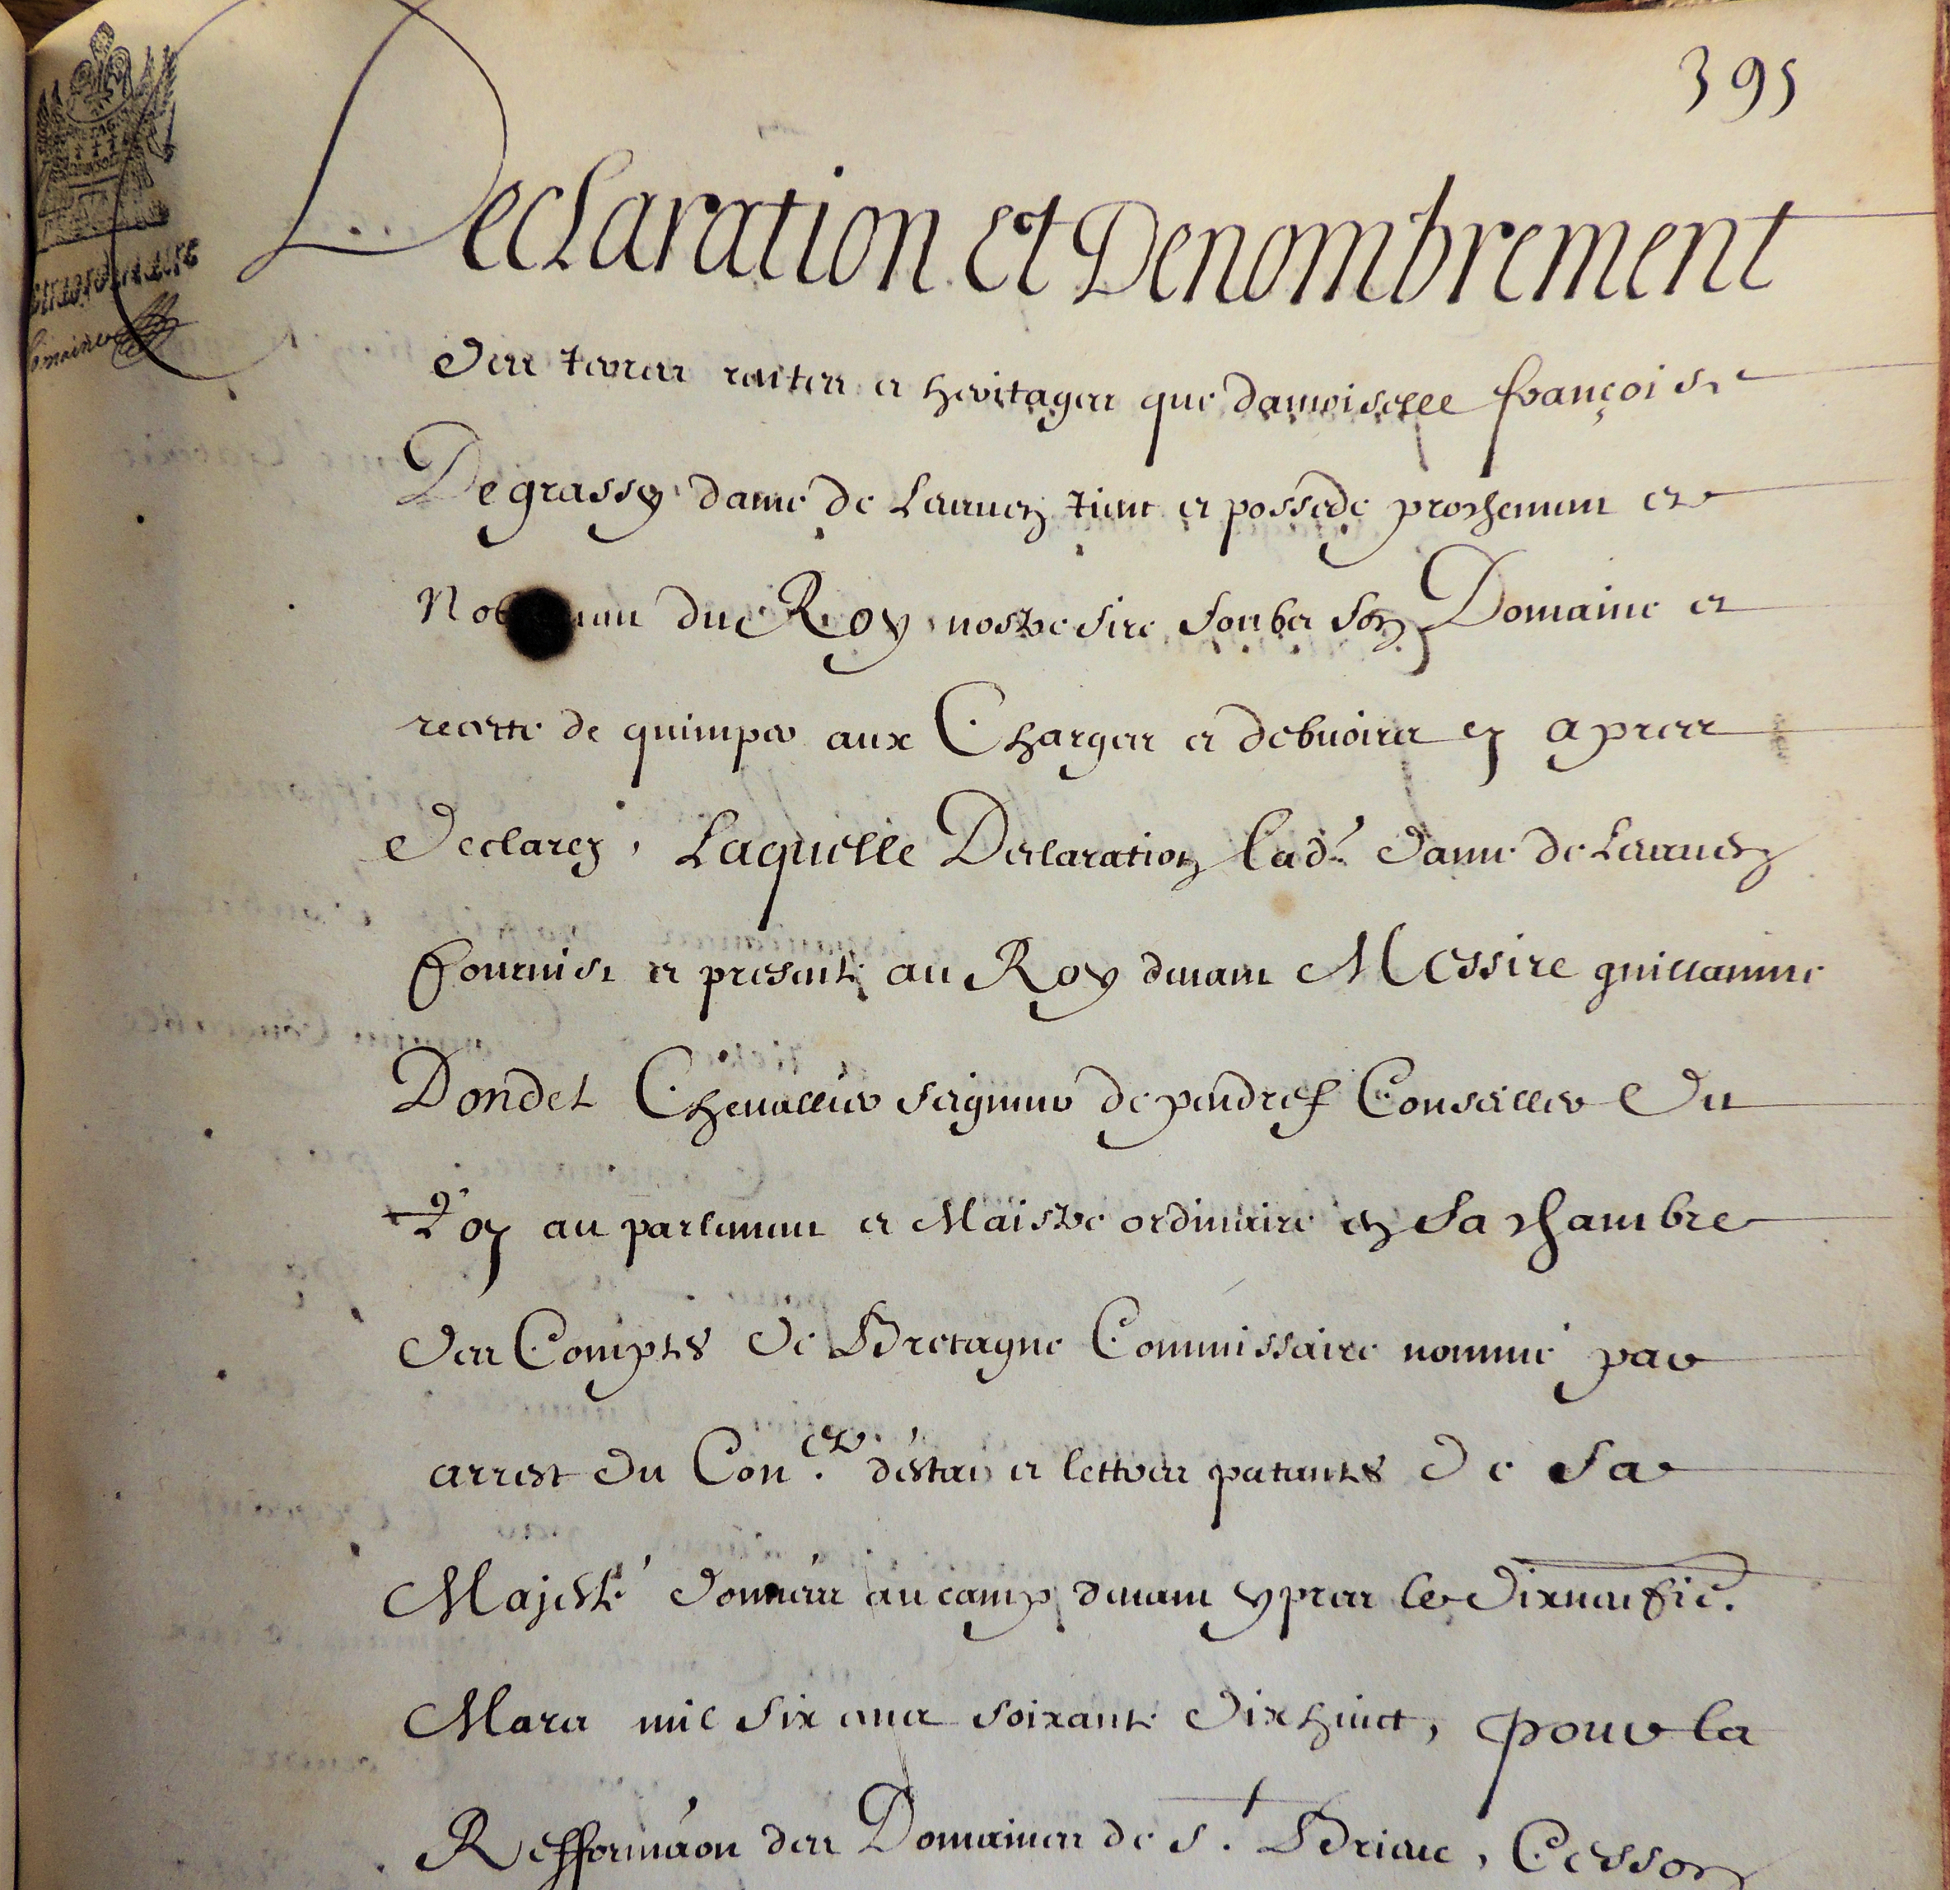 395
Declaration Et Denombrement
des terres rentes et heritages que damoiselle françoise
Degrassy dame de Lesmen tient et possede prochement et
du Roy nostre sire soubz son Domaine et
recette de quimper aux Charges et debuoirs cy apres
declarez, Laquelle Declaration lad.e dame de Lesmen
fournist et presente au Roy deuant Messire guillaume
Dondel Cheuallier seigneur de pendref Conseiller du
Roy au parlement et Maistre ordinaire en sa chambre
des Comptes de Bretagne Commissaire nommé par
arrest du Con.el d'estat et lettres patantes de sa
Majesté données au camp deuant ypres le dixneufie.
Mars mil six cens soixante dixhuict, pour la
Refformáon des Domaines de s.t Brieuc, Cesson